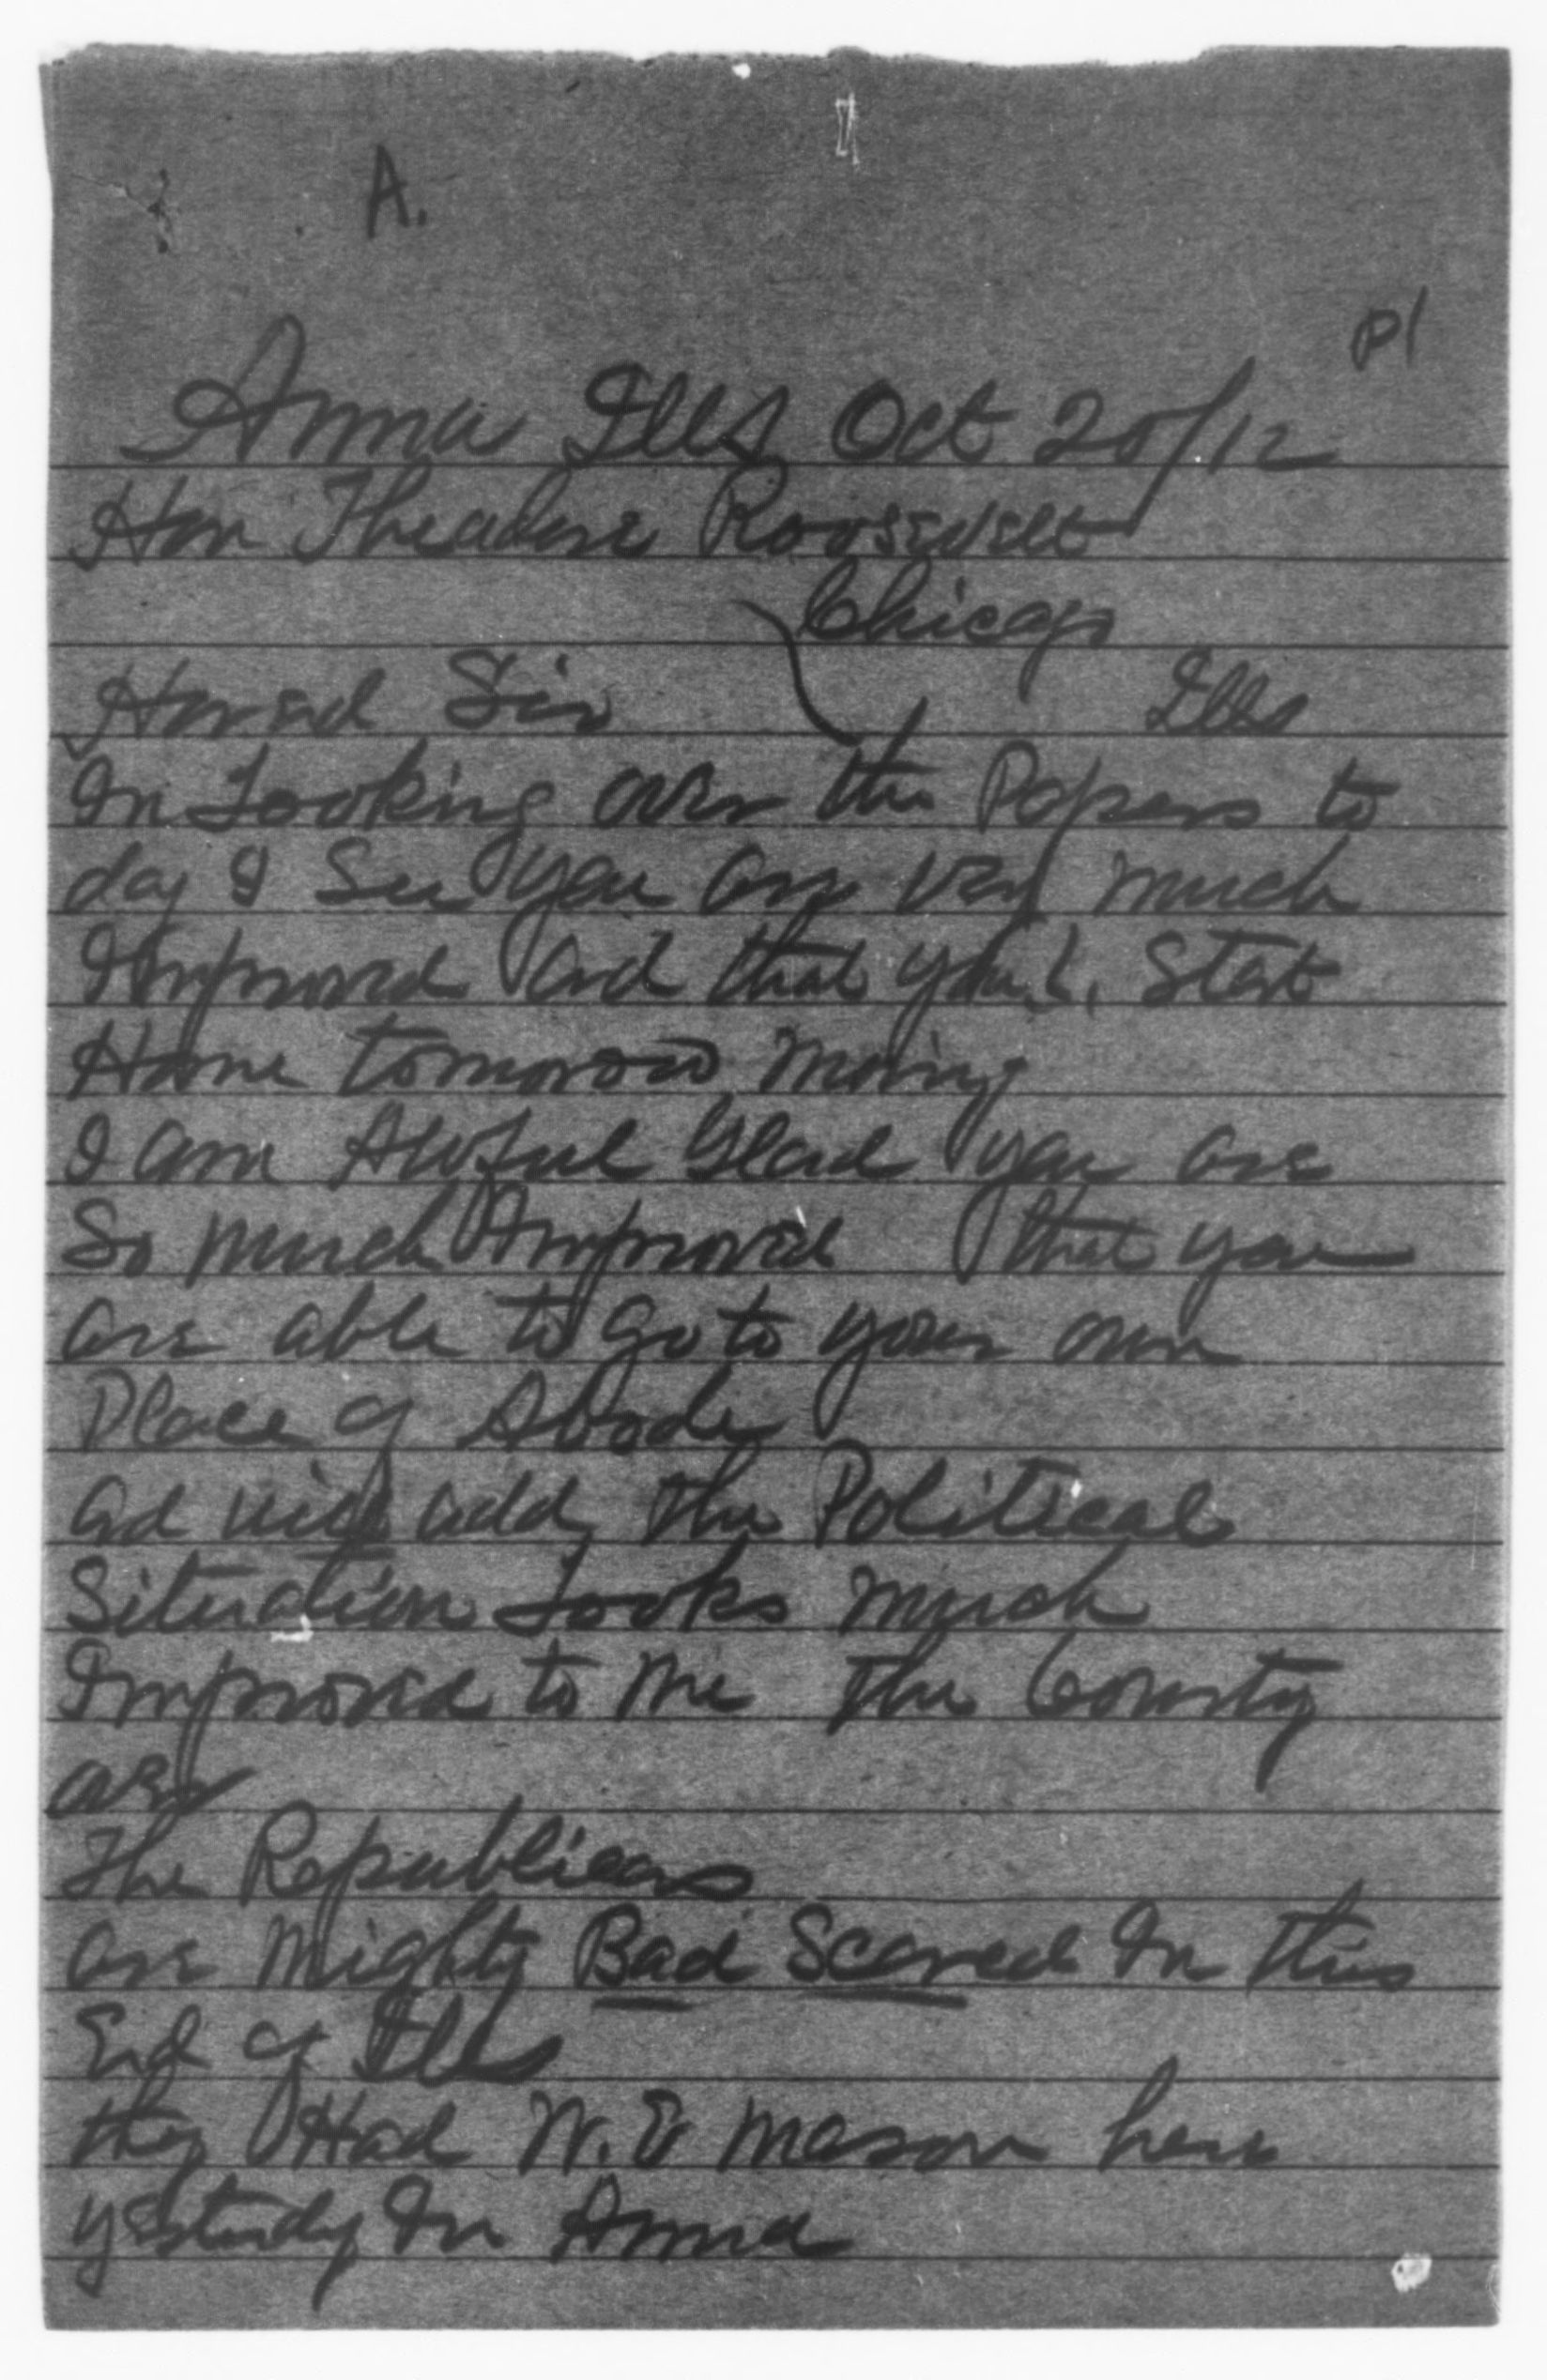 A.
P1
Anna Ills Oct 20/12
Hon Theadore Roosevelt
Chicago
Ills
Honred Sir
In Looking over the Papers to
day I See you are very much
Improved and that you Start
Home tomorow Morning
I am Awful Glad you are
So much Improved that you
are able to go to your own
Place of Abode
and will add the Political
Situation Looks much
Improved to me The County
over
The Republicans
are Mighty Bad Scared In this
End of Ills
they Had W. E Mason here
yestudy In Anna